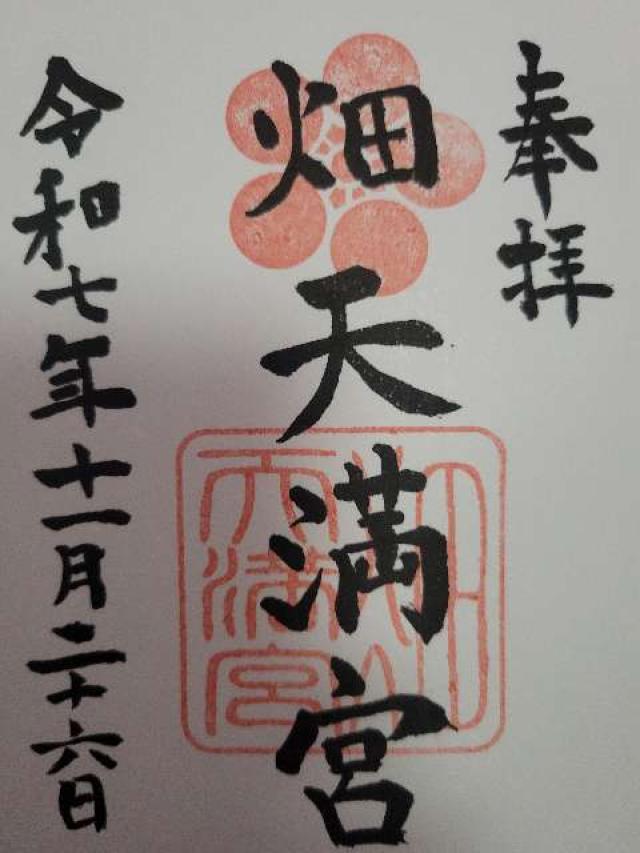 奉拝
畑天満宮
令和七年十一月二十六日
畑天満宮